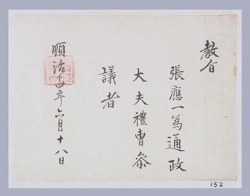 敎旨
張應一爲通政
大夫禮曹叅
議者
順治十四年六月十八日
152